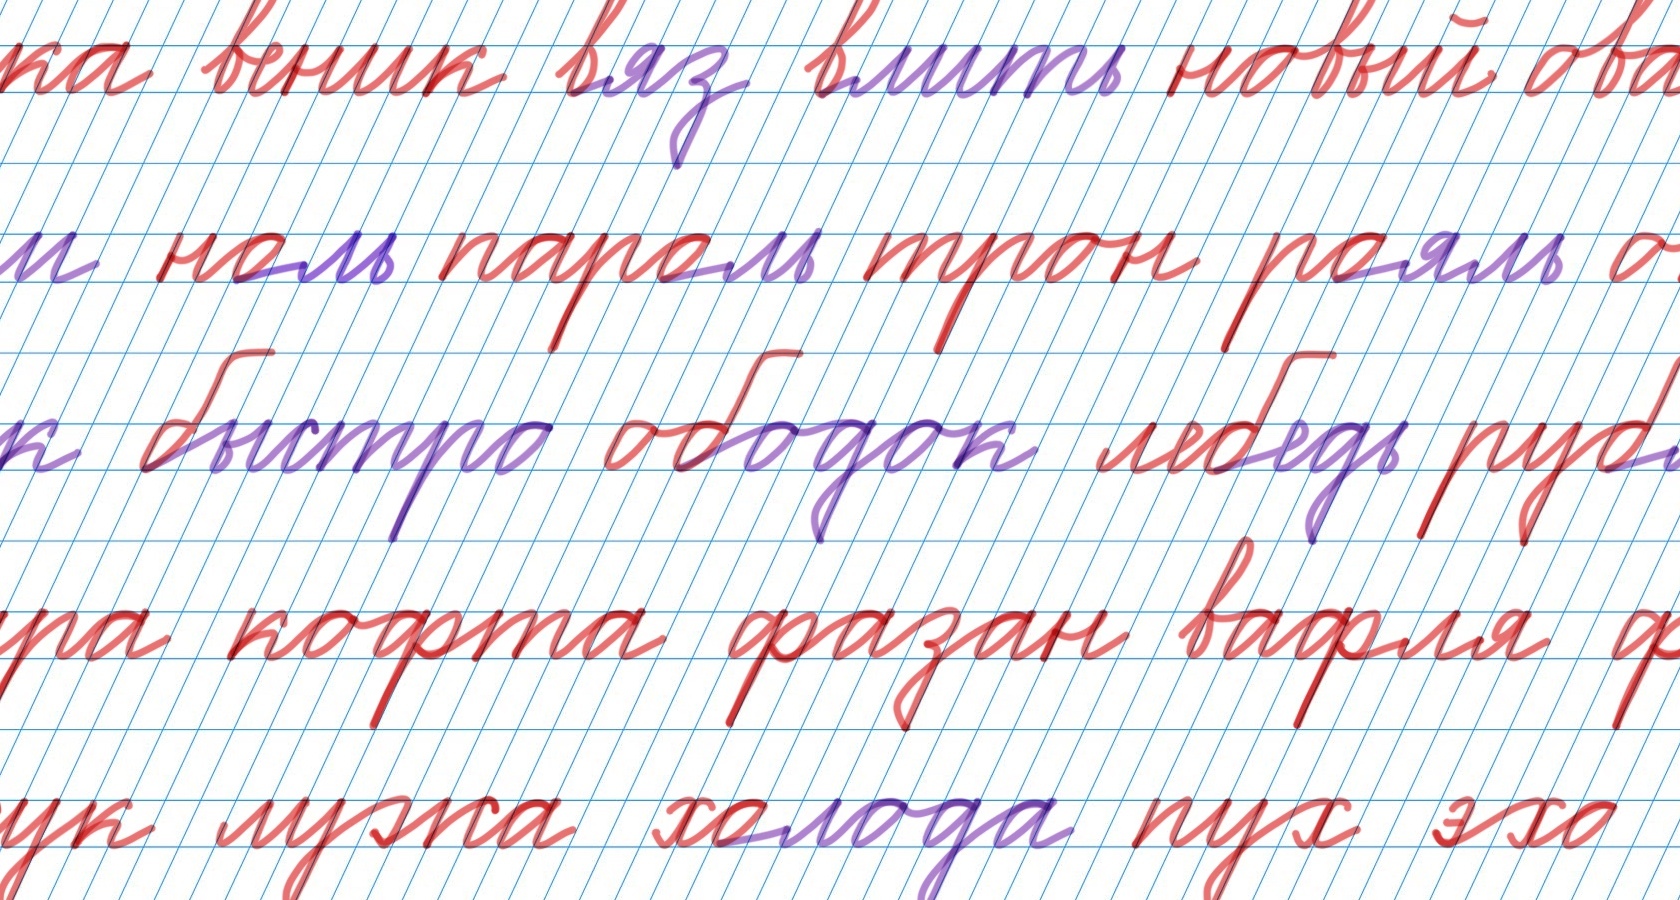 ка веник вяз влить новый ова
и ноль пароль трон рояль о
к быстро ободок лебедь руб
ра кофта фазан вафля ф
ук лужа холода пух эхо